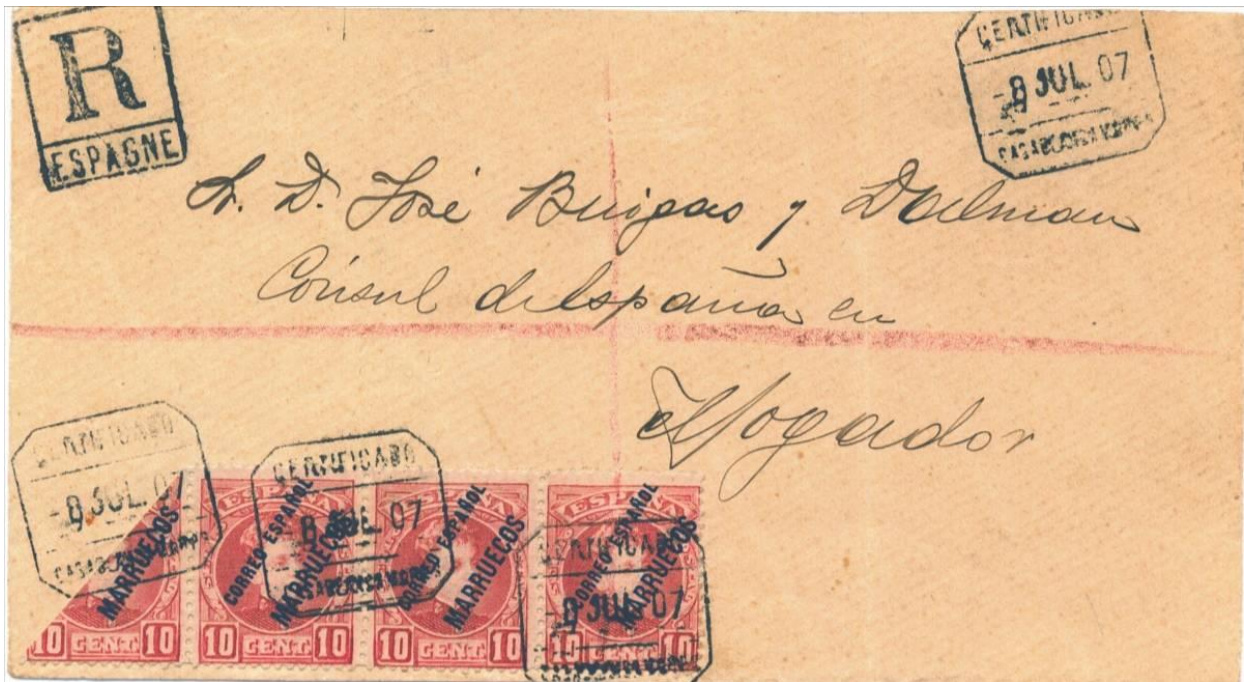 R
ESPAGNE
CERTIFICADO
-8 JUL. 07
Sr. D. José Buigas y Dalmau
Cónsul de España en
Mogador
CERTIFICADO
-8 JUL. 07
CERTIFICADO
8 JUL. 07
CERTIFICADO
-8 JUL. 07
MARRUECOS
10 CENT. 10
ESPAÑA
CORREO ESPAÑOL
MARRUECOS
10 CENT. 10
ESPAÑA
CORREO ESPAÑOL
MARRUECOS
10 CENT. 10
ESPAÑA
CORREO ESPAÑOL
MARRUECOS
10 CENT. 10